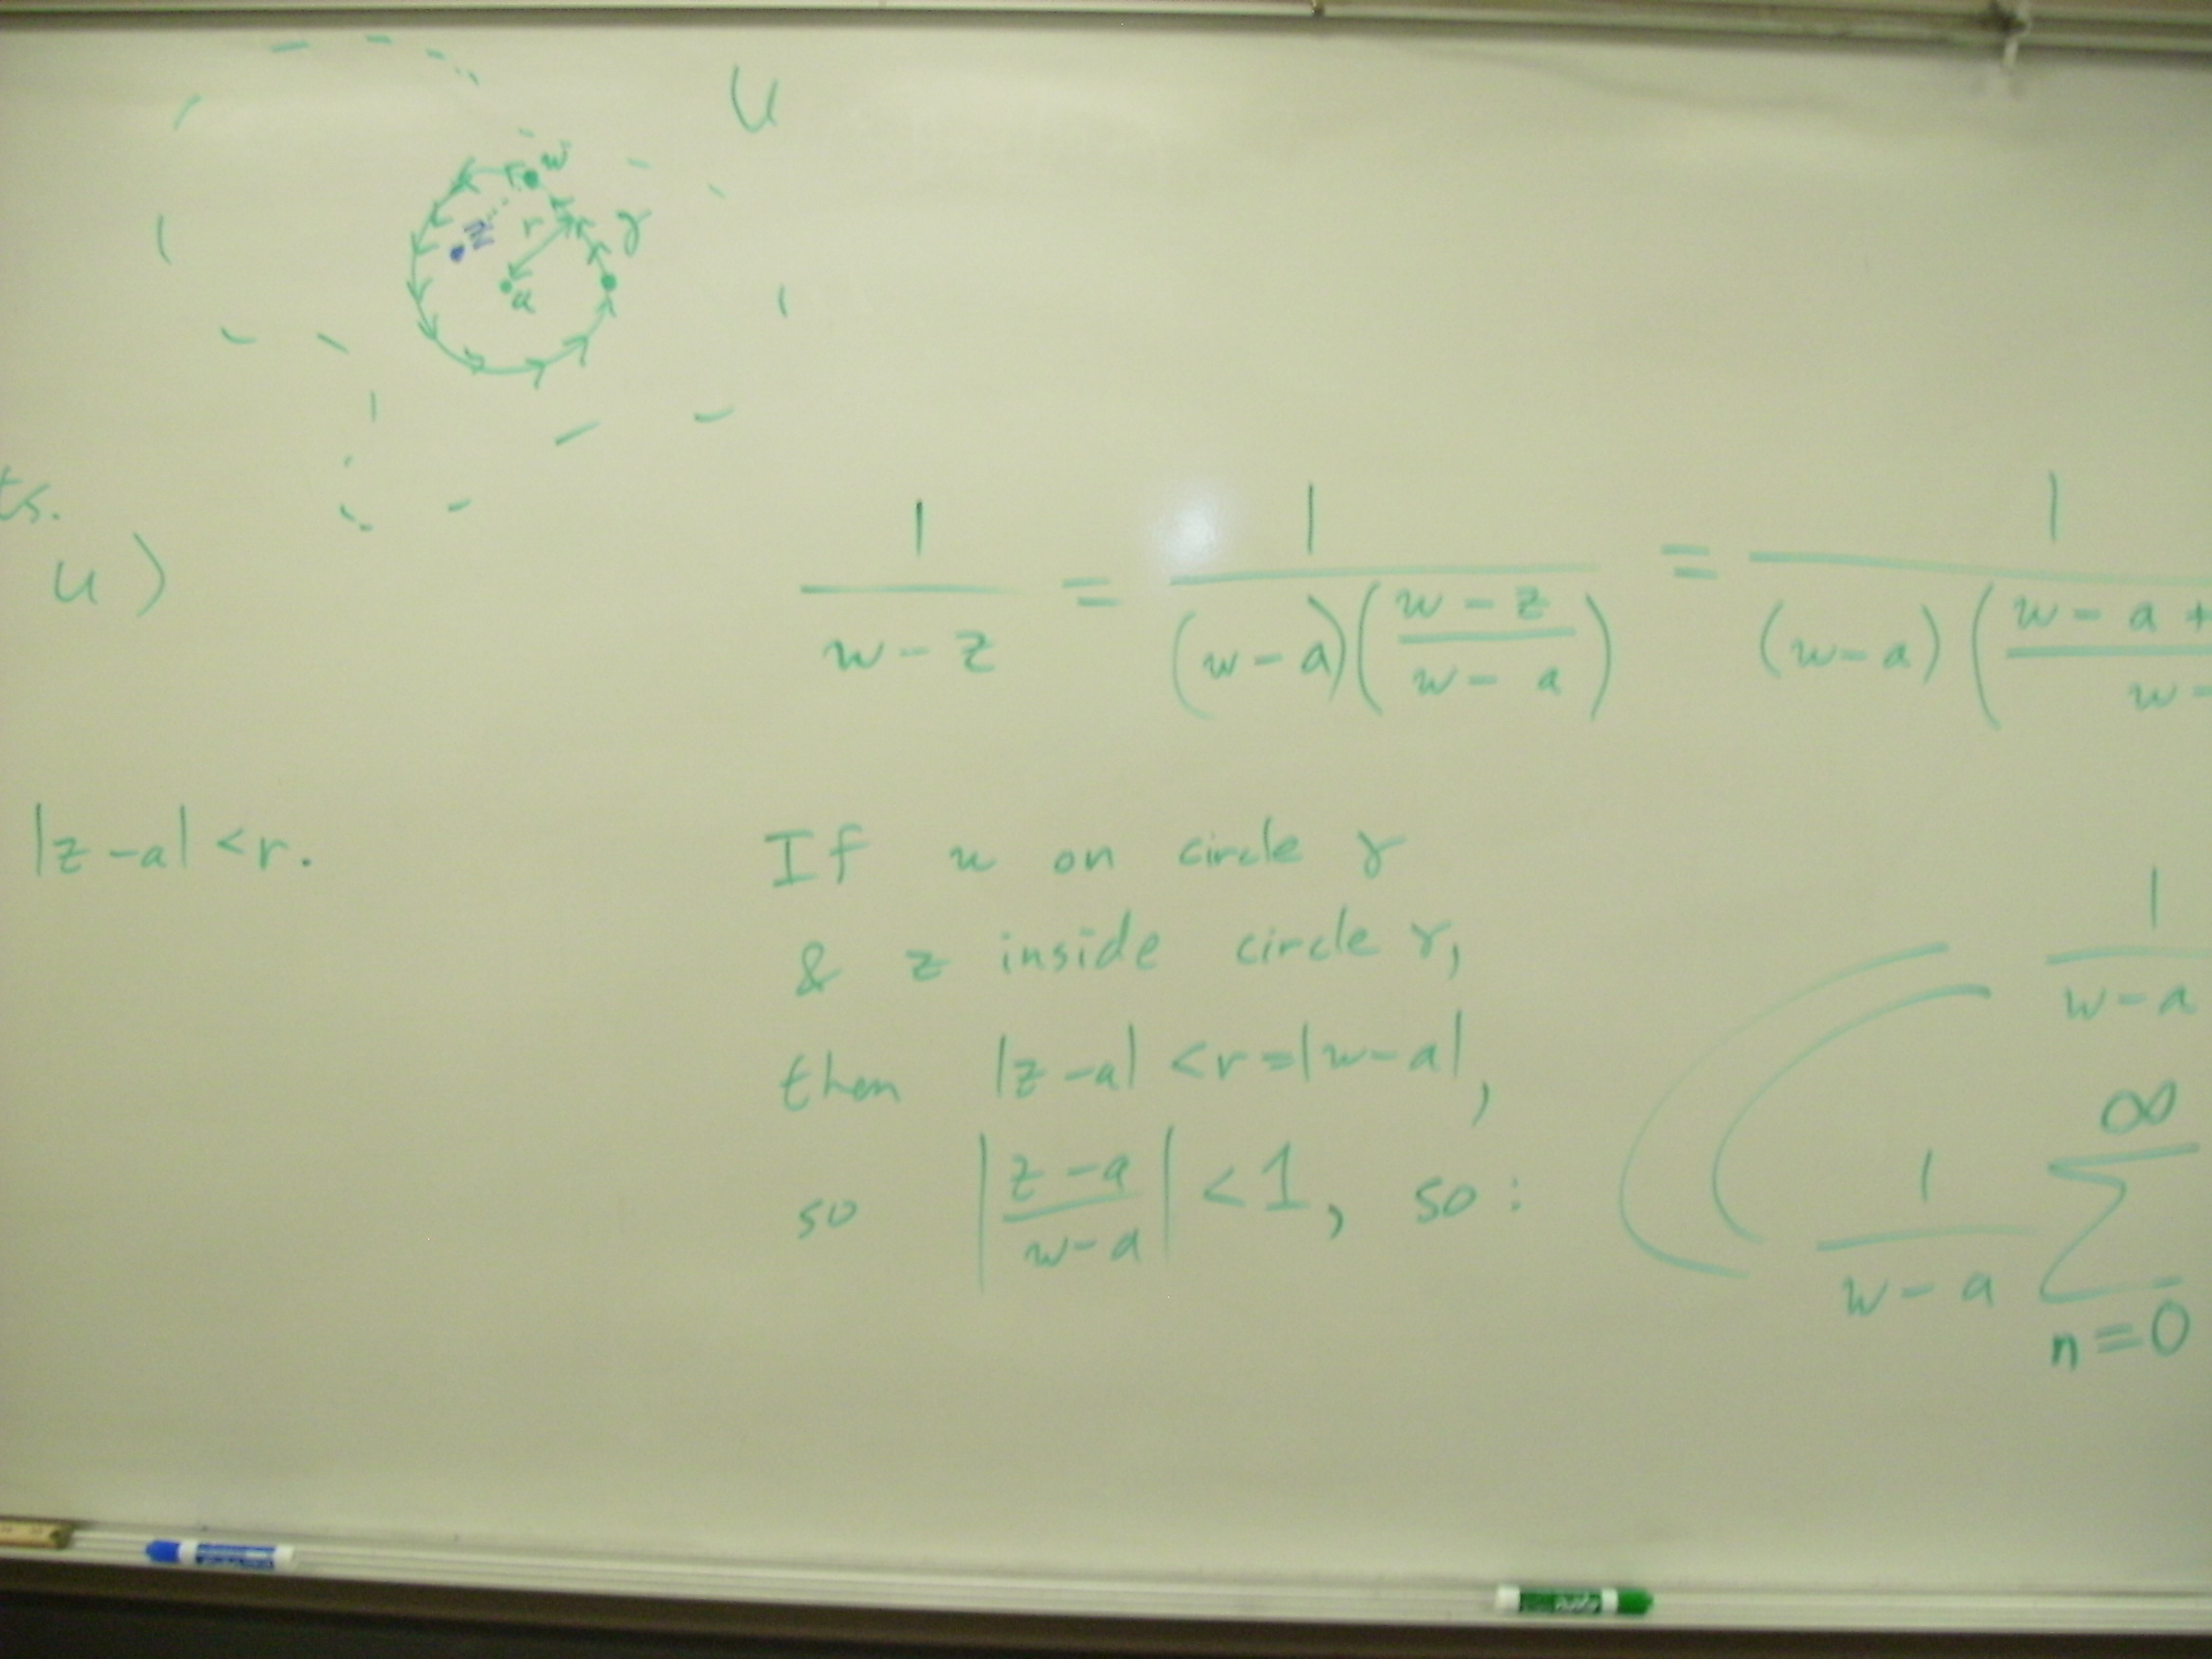 U
w
z
r
γ
a
ts.
u )
1/(w-z) = 1/((w-a)((w-z)/(w-a))) = 1/((w-a)((w-a+/(w-
|z-a| <r.
If w on circle γ
& z inside circle γ,
then |z-a| <r=|w-a|,
so |(z-a)/(w-a)| <1, so:
1/(w-a)
1/(w-a) ∞ ∑ n=0